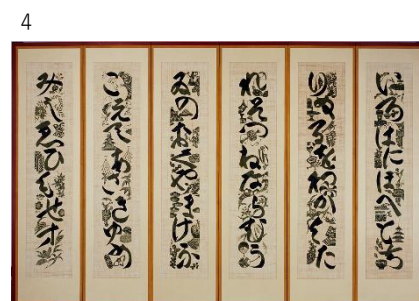 4
いろはにほへとち
りぬるをわかよた
れそつねならむう
ゐのおくやまけふ
こえてあさきゆめ
みしゑひもせす